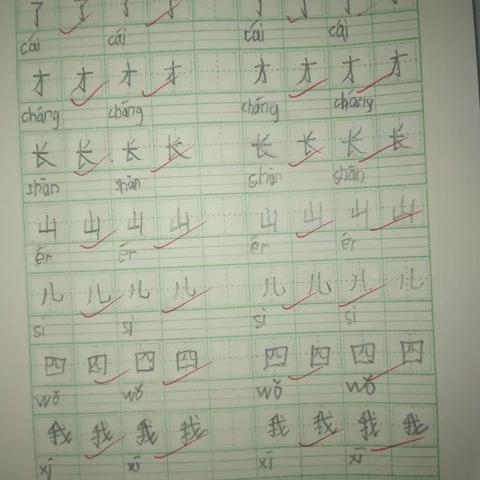 了 了 了 了 了 了 了 了
cái cái cái cái
才 才 才 才 才 才 才 才
cháng cháng cháng cháng
长 长 长 长 长 长 长 长
shān shān shān shān
山 山 山 山 山 山 山 山
ér ér ér ér
儿 儿 儿 儿 儿 儿 儿 儿
sì sì sì sì
四 四 四 四 四 四 四 四
wǒ wǒ wǒ wǒ
我 我 我 我 我 我 我 我
xī xī xī xī